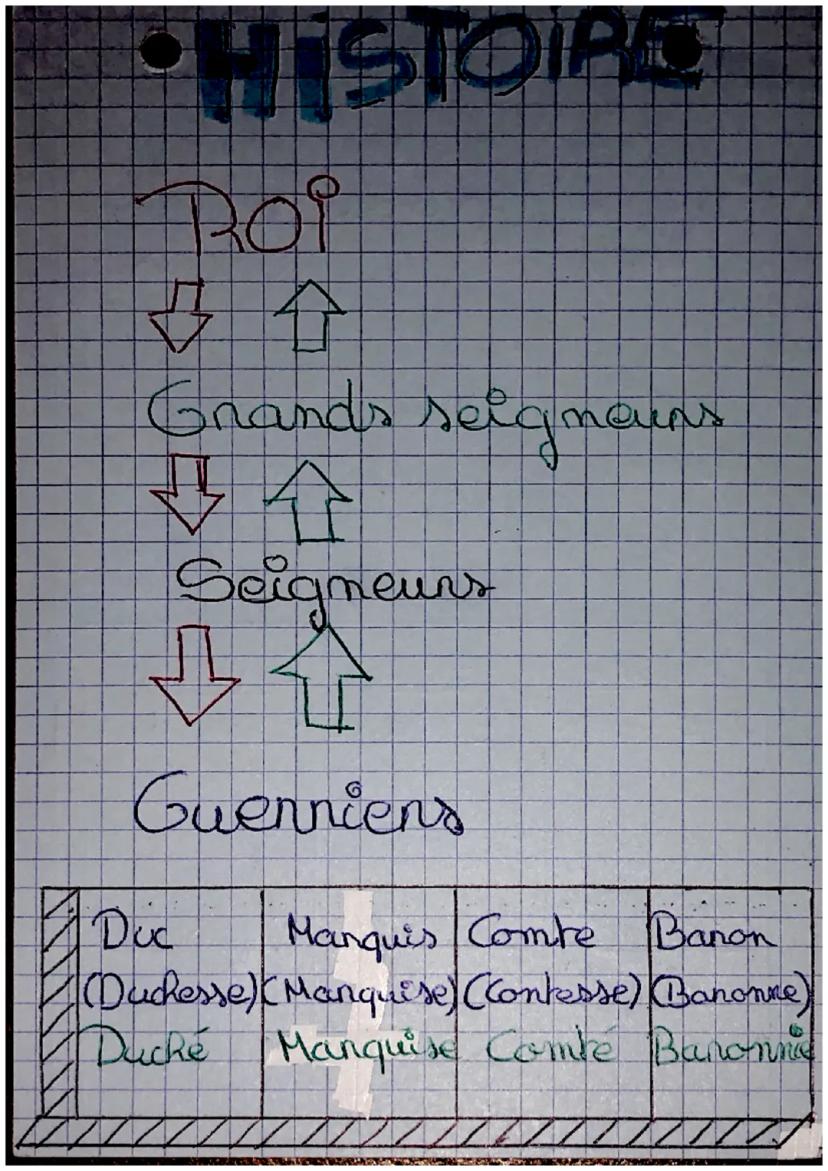 HiSTOiRE
ROi
Grands seigneurs
Seigneurs
Guerriers
Duc
(Duchesse)
Duché
Marquis
(Marquise)
Marquise
Comte
(Contesse)
Comté
Baron
(Baronne)
Baronnie